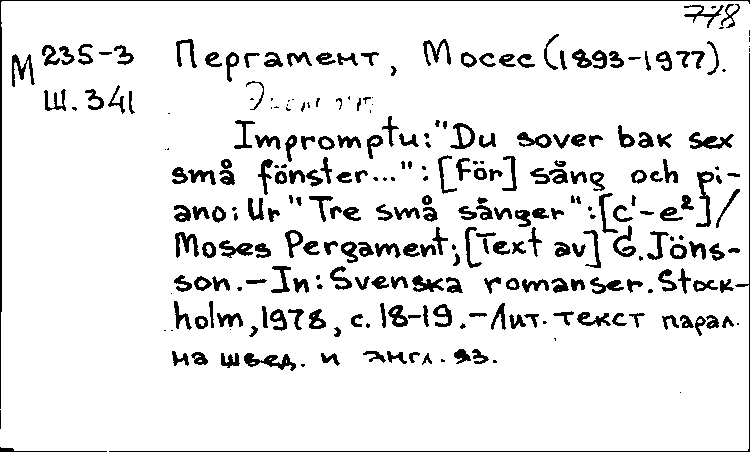 778
М 235-3 Пергамент, Мосес (1893-1977).
Ш. 341
Impromptu: "Du sover bak sex
små fönster...": [För] sång och pi-
ano: Ur "Tre små sånger": [c¹-e²]/
Moses Pergament; [Text av] G. Jöns-
son. - In: Svenska romanser. Stock-
holm, 1978, с. 18-19. - Лит. текст парал.
на швед. и англ. яз.